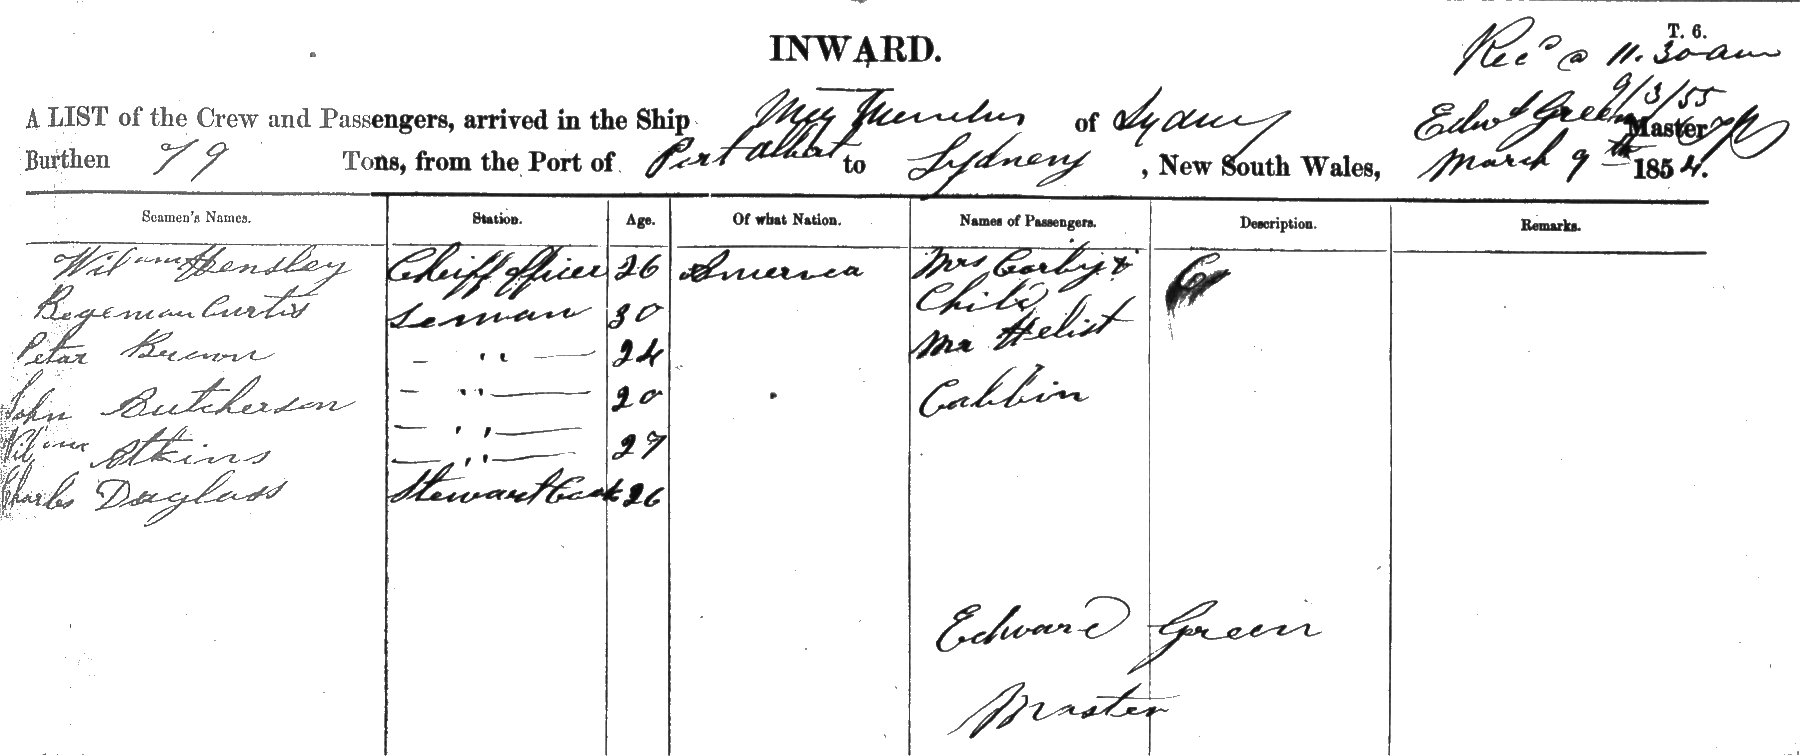 T. 6.
INWARD.
Recd @ 11.30 am
9/3/55
A LIST of the Crew and Passengers, arrived in the Ship of Sydney Edwd Green Master
Burthen 79 Tons, from the Port of Port Albert to Sydney, New South Wales, March 9th 1854.
Seamen's Names. Station. Age. Of what Nation. Names of Passengers. Description. Remarks.
Wilam Hensley Cheiff officer 26 America Mrs Corby &
Child
Begeman Curtis Seman 30
Mr Helist
Petar Brown — " — 24
John Butcherson — " — 20 Cabbin
Wilam Atkins — " — 27
— " —
Charles Duglass Stewart Cook 26
Edward Green
Master